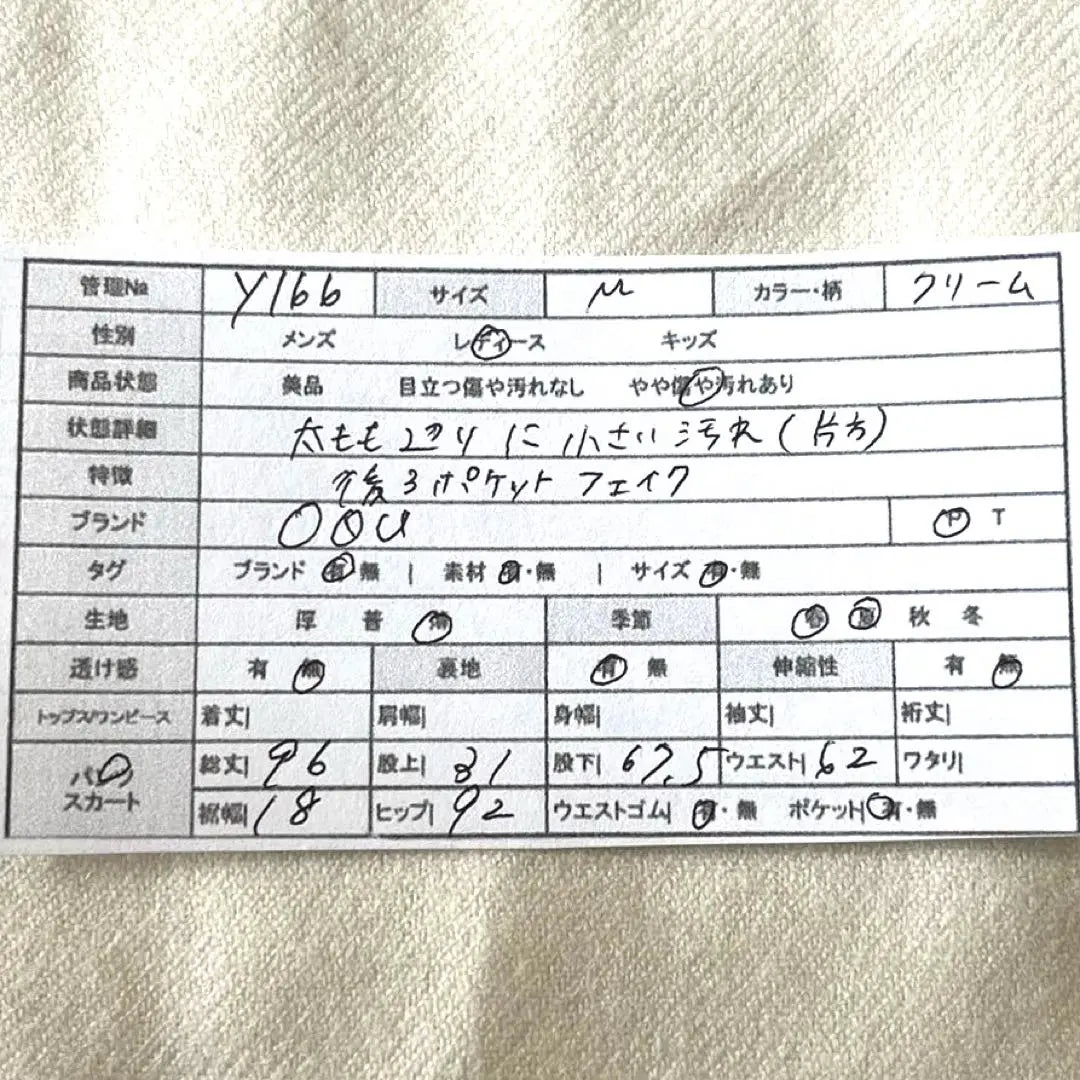 管理№ Y166 サイズ M カラー・柄 クリーム
性別 メンズ レディース キッズ
商品状態 美品 目立つ傷や汚れなし やや傷や汚れあり
状態詳細 太もも辺りに小さい汚れ(片方)
特徴 後ろポケットフェイク
ブランド P T
タグ ブランド 有 無 | 素材 有・無 | サイズ 有・無
生地 厚 普 薄 季節 春 夏 秋 冬
透け感 有 無 裏地 有 無 伸縮性 有 無
トップス/ワンピース 着丈| 肩幅| 身幅| 袖丈| 裄丈|
総丈| 96 股上| 31 股下| 67.5 ウエスト| 62 ワタリ|
スカート 裾幅| 18 ヒップ| 92 ウエストゴム| 有・無 ポケット| 有・無